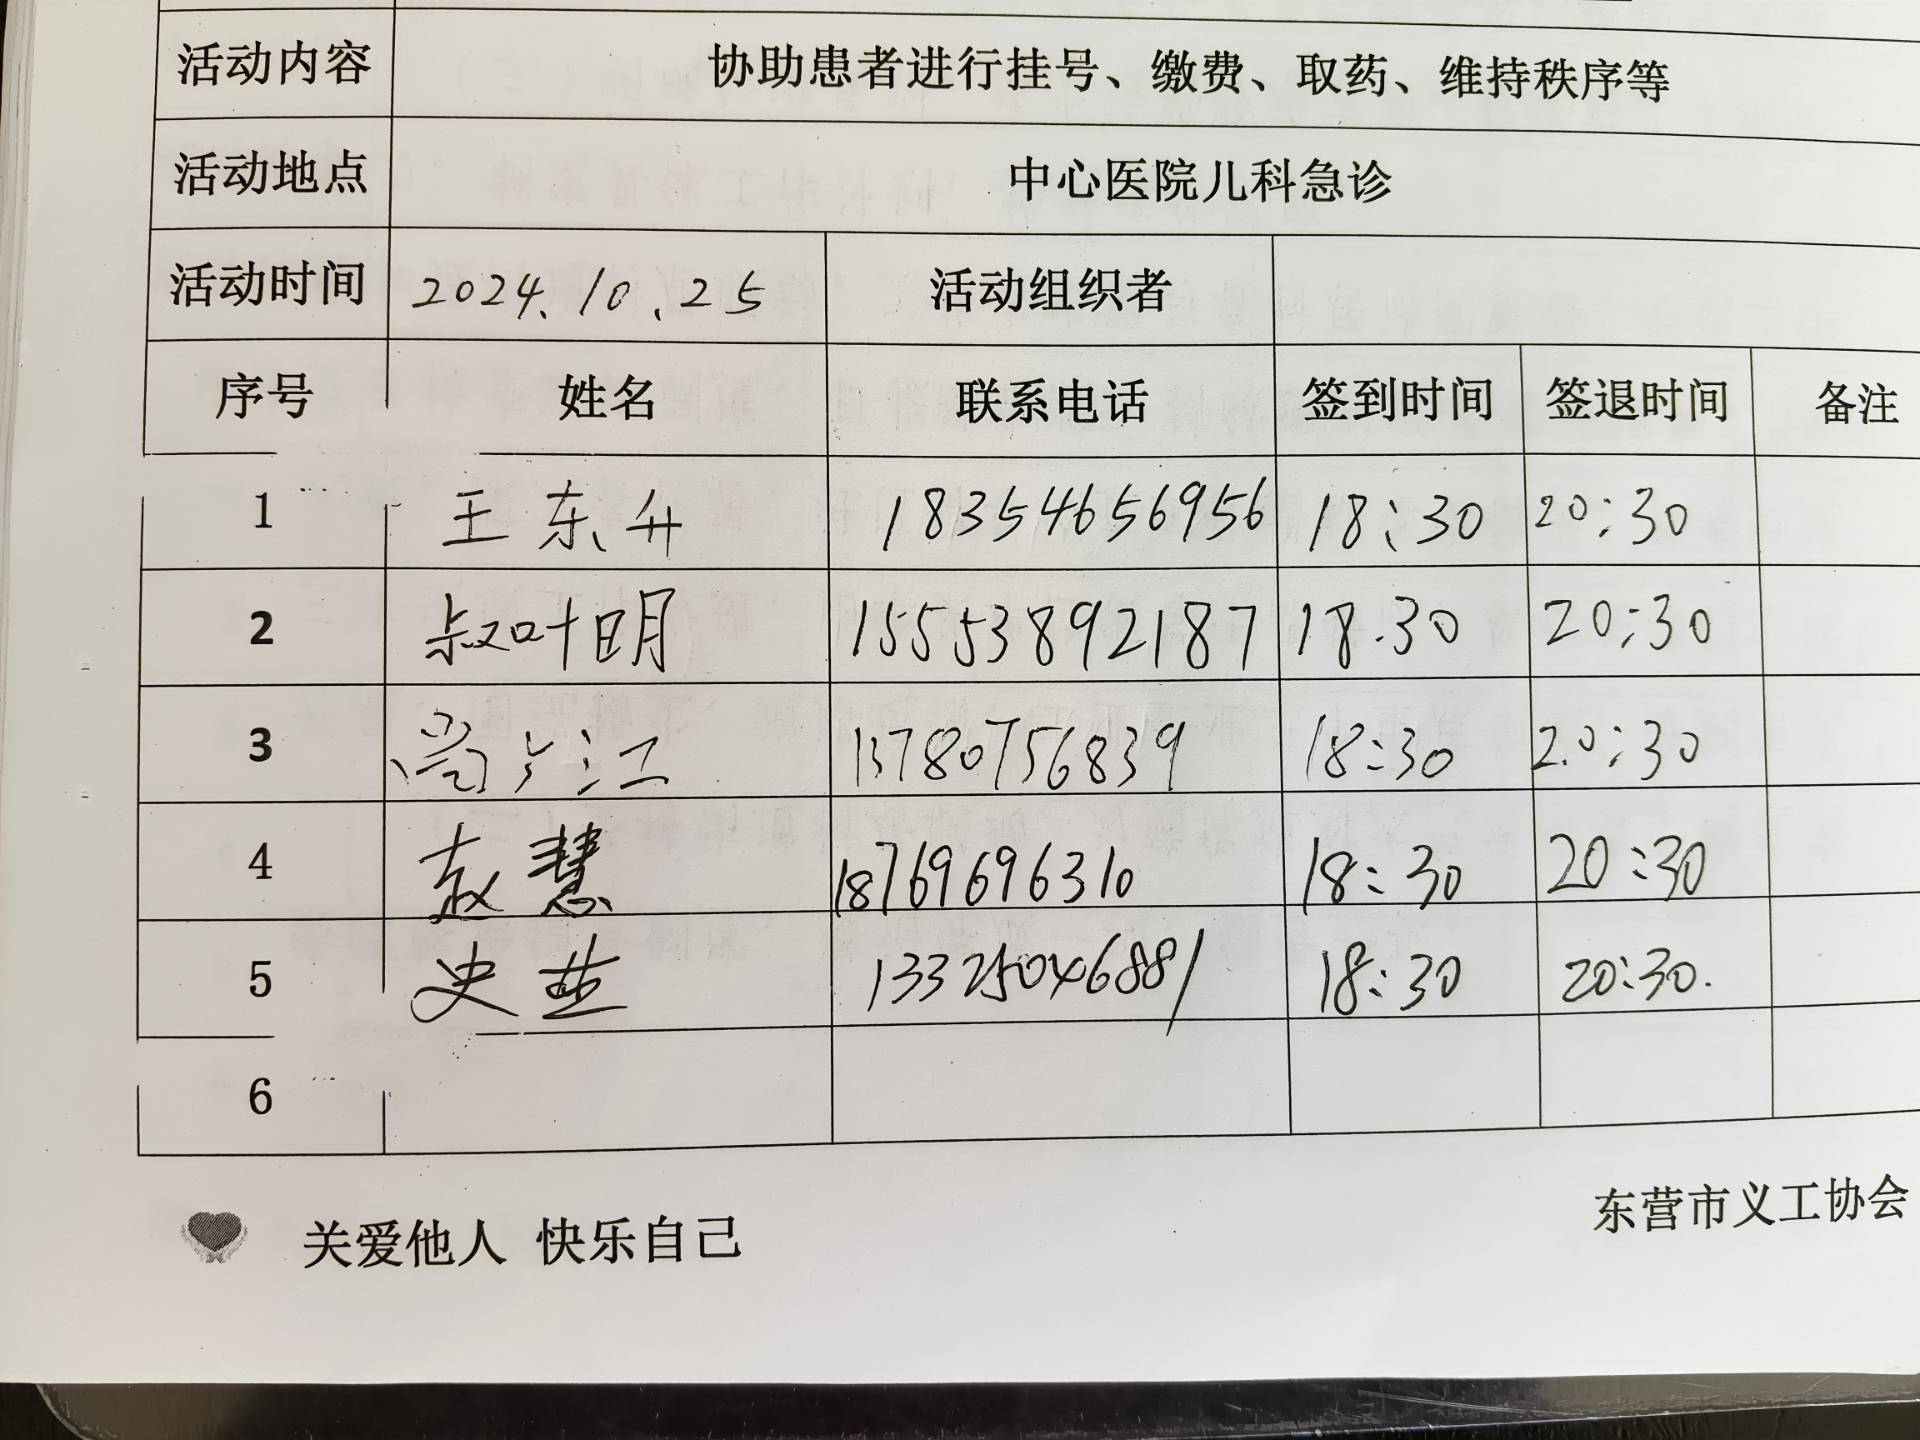 活动内容 协助患者进行挂号、缴费、取药、维持秩序等
活动地点 中心医院儿科急诊
活动时间 2024.10.25 活动组织者
序号 姓名 联系电话 签到时间 签退时间 备注
1 王东升 18354656956 18:30 20:30
2 叶明 15553892187 18.30 20:30
3 江 13780756839 18:30 20:30
4 赵慧 18769696310 18:30 20:30
5 史 13325046881 18:30 20:30.
6
关爱他人 快乐自己
东营市义工协会